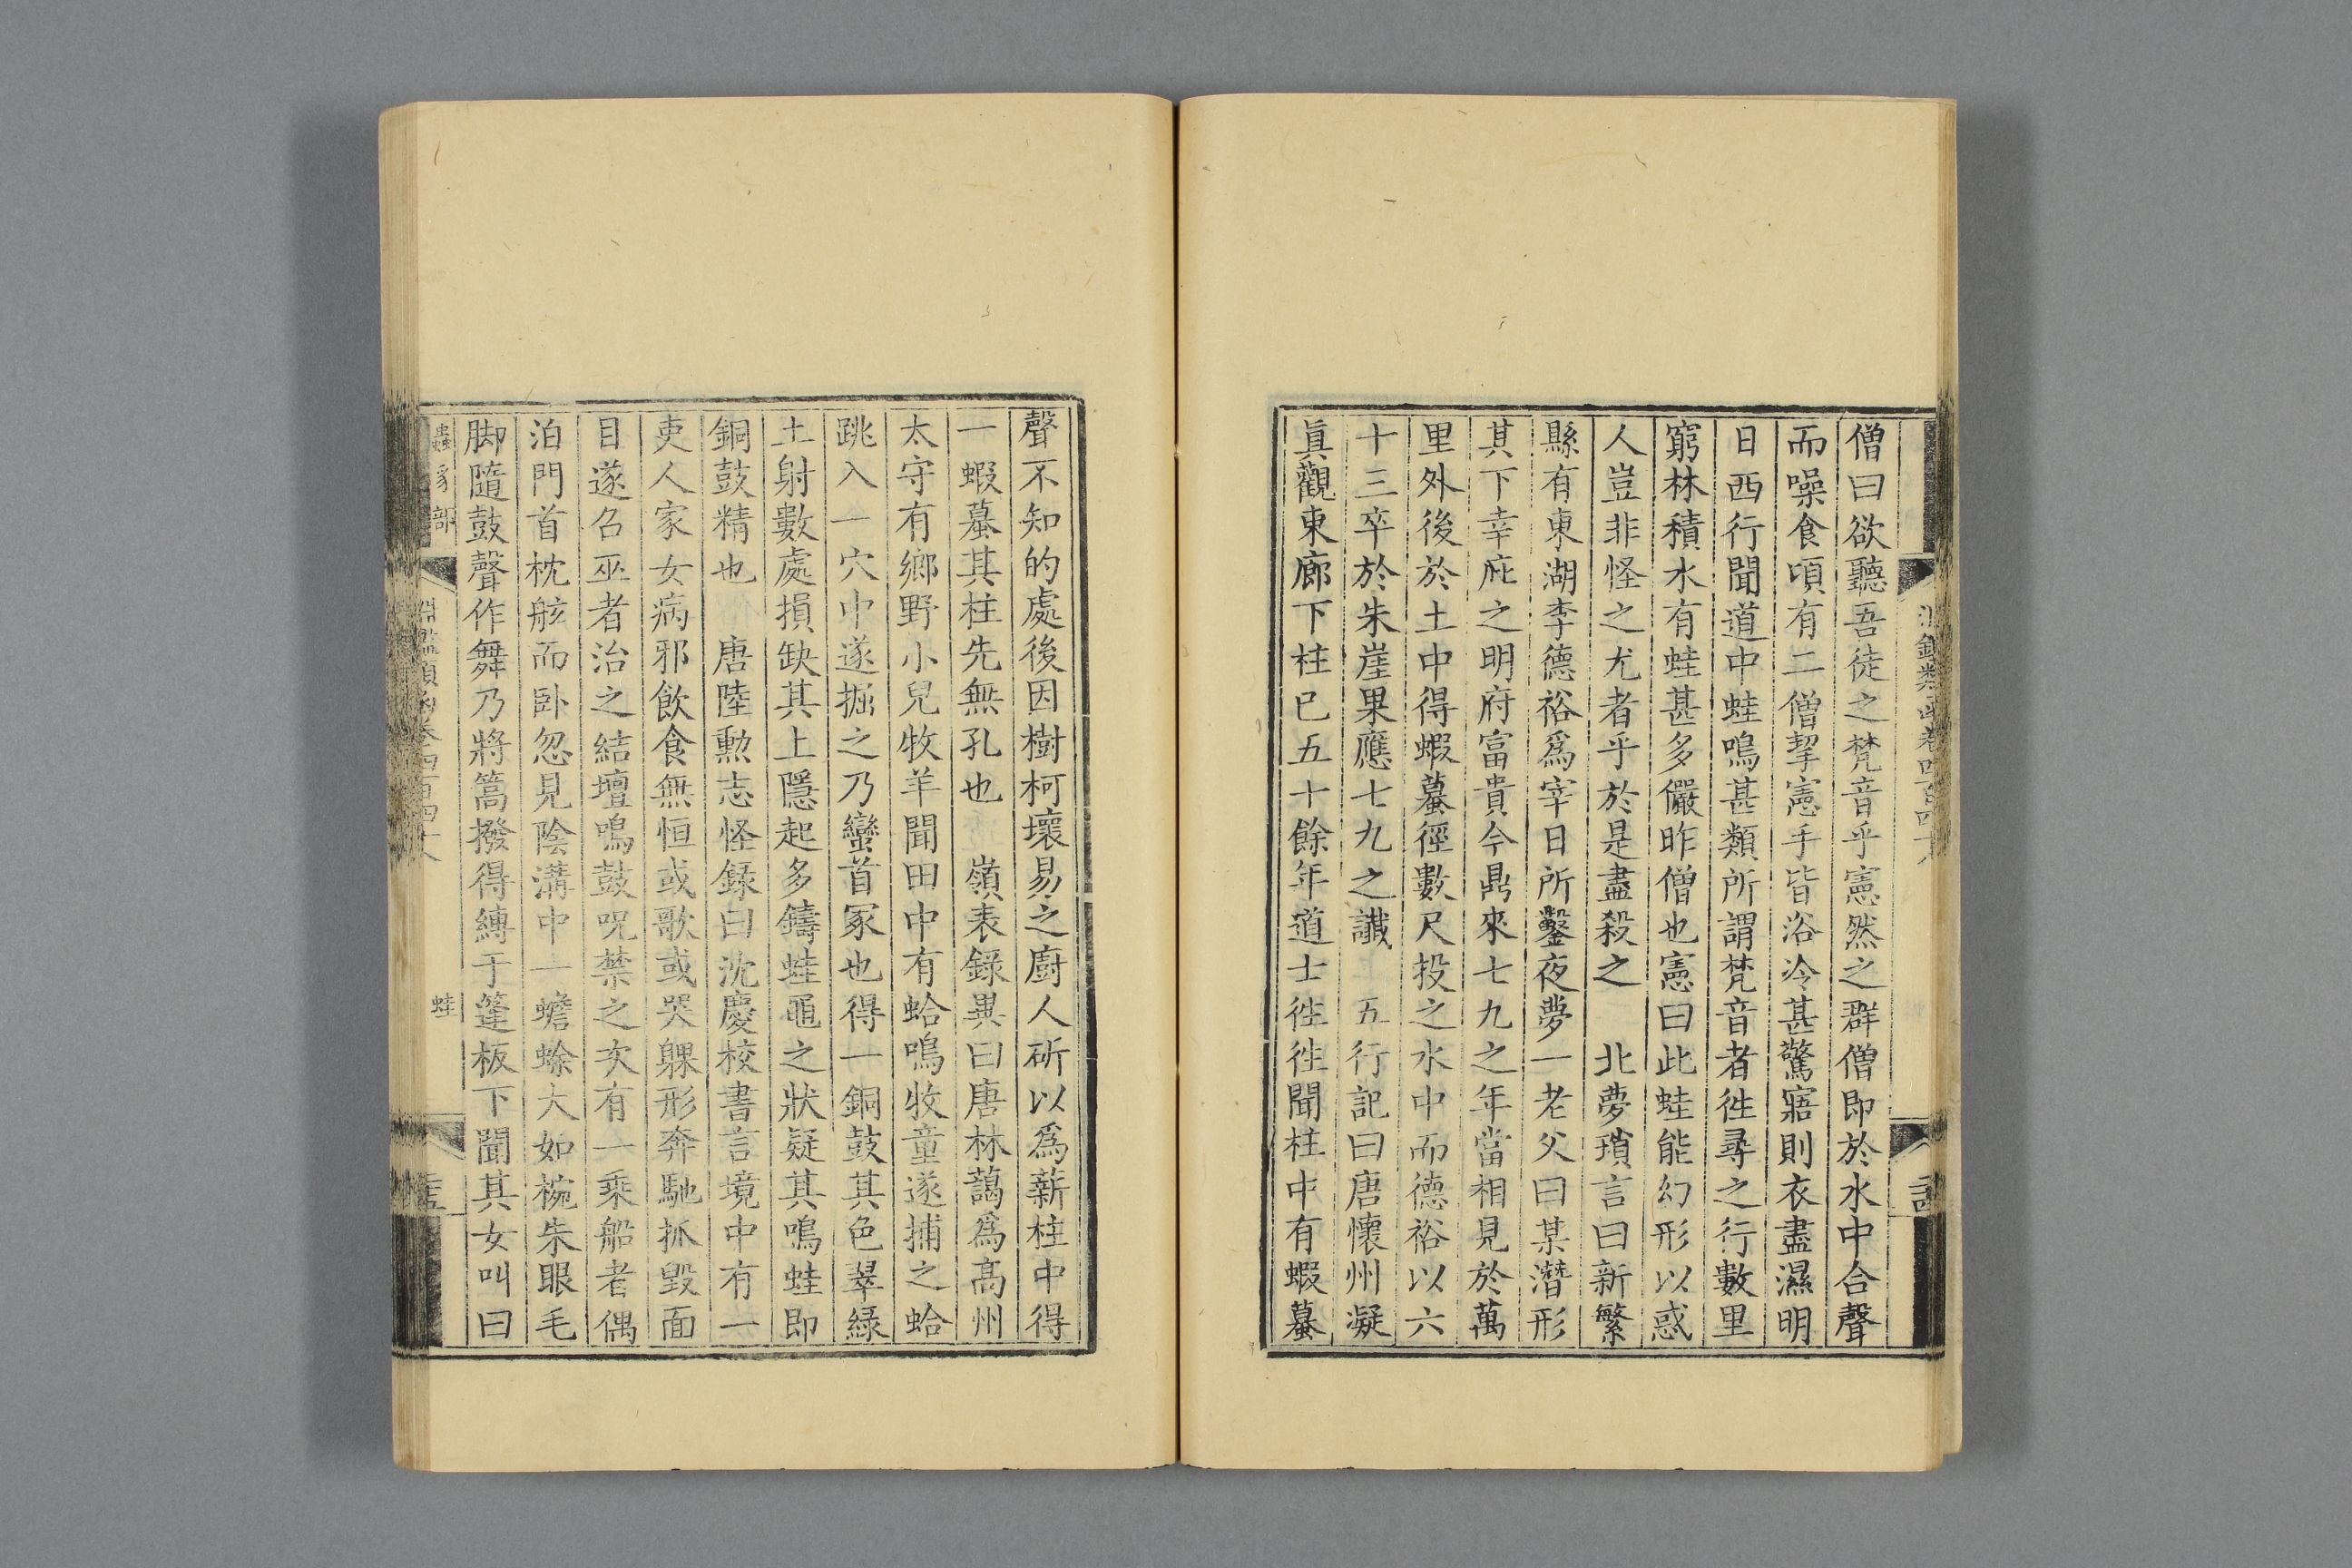 僧曰欲聽吾徒之梵音乎憲然之群僧即於水中合聲
而噪食頃有二僧挈憲手皆浴冷甚驚寤則衣盡濕明
日西行聞道中蛙鳴甚類所謂梵音者徃尋之行數里
窮林積水有蛙甚多儼昨僧也憲曰此蛙能幻形以惑
人豈非怪之尤者乎於是盡殺之　北夢瑣言曰新繁
縣有東湖李德裕爲宰日所鑿夜夢一老父曰某潛形
其下幸庇之明府富貴今鼎來七九之年當相見於萬
里外後於土中得蝦蟇徑數尺投之水中而德裕以六
十三卒於朱崖果應七九之讖　五行記曰唐懷州凝
眞觀東廊下柱已五十餘年道士徃徃聞柱中有蝦蟇
聲不知的處後因樹柯壞易之廚人斫以爲薪柱中得
一蝦蟇其柱先無孔也　嶺表錄異曰唐林藹爲高州
太守有鄉野小兒牧羊聞田中有蛤鳴牧童遂捕之蛤
跳入一穴中遂掘之乃蠻首冢也得一銅鼓其色翠緑
土射數處損缺其上隱起多鑄蛙黽之狀疑其鳴蛙即
銅鼓精也　唐陸勲志怪錄曰沈慶校書言境中有一
吏人家女病邪飲食無恒或歌或哭躶形奔馳抓毀面
目遂召巫者治之結壇鳴鼓呪禁之次有一乘船者偶
泊門首枕舷而卧忽見陰溝中一蟾蜍大如椀朱眼毛
脚隨鼓聲作舞乃將篙撥得縛于篷板下聞其女叫曰
蟲豸部
蛙